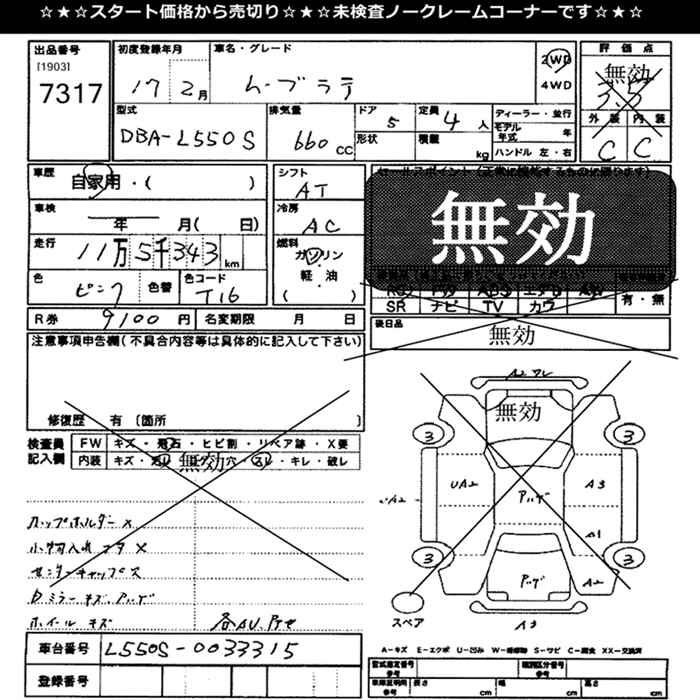 ☆★☆スタート価格から売切り☆★☆未検査ノークレームコーナーです☆★☆
出品番号 初度登録年月 車名・グレード 評価点
[1903]
7317 17 2月 ムーブラテ 2WD 4WD 無効 3.5
型式 排気量 ドア 定員 ディーラー・並行 外装 内装
DBA-L550S 660CC 5 4人 モデル年式 年 C C
形状 積載 kg ハンドル 左・右
車歴 自家用・( ) シフト AT セールスポイント
車検 年 月( 日) 冷房 AC 無効
走行 11万5千343km 燃料 ガソリン
色 ピンク 色替 色コード T16 軽・油
( )
SR ナビ TV カワ 有・無
R券 9100円 名変期限 月 日 後日品
無効
注意事項申告欄(不具合内容等は具体的に記入して下さい)
修復歴 有 〔箇所 〕
無効
検査員 FW キズ・飛石・ヒビ割・リペア跡・X要
記入欄 内装 キズ・ 無効 穴・ ・キレ・破レ
3 3
UA2 アハゲ A3
A1
カップホルダー ×
小物入れフタ ×
3 3
センターキャップ欠
アハゲ A2
Dミラーキズ、アハゲ
スペア A3
ホイールキズ 各AU、
車台番号 L550S-0033315
A-キズ E-エクボ U-凹み S-サビ C-腐食 XX-交換済
登録番号
型式指定番号 参考 類別区分番号 参考
車庫証明用 参考 長さ cm 幅 cm 高さ cm